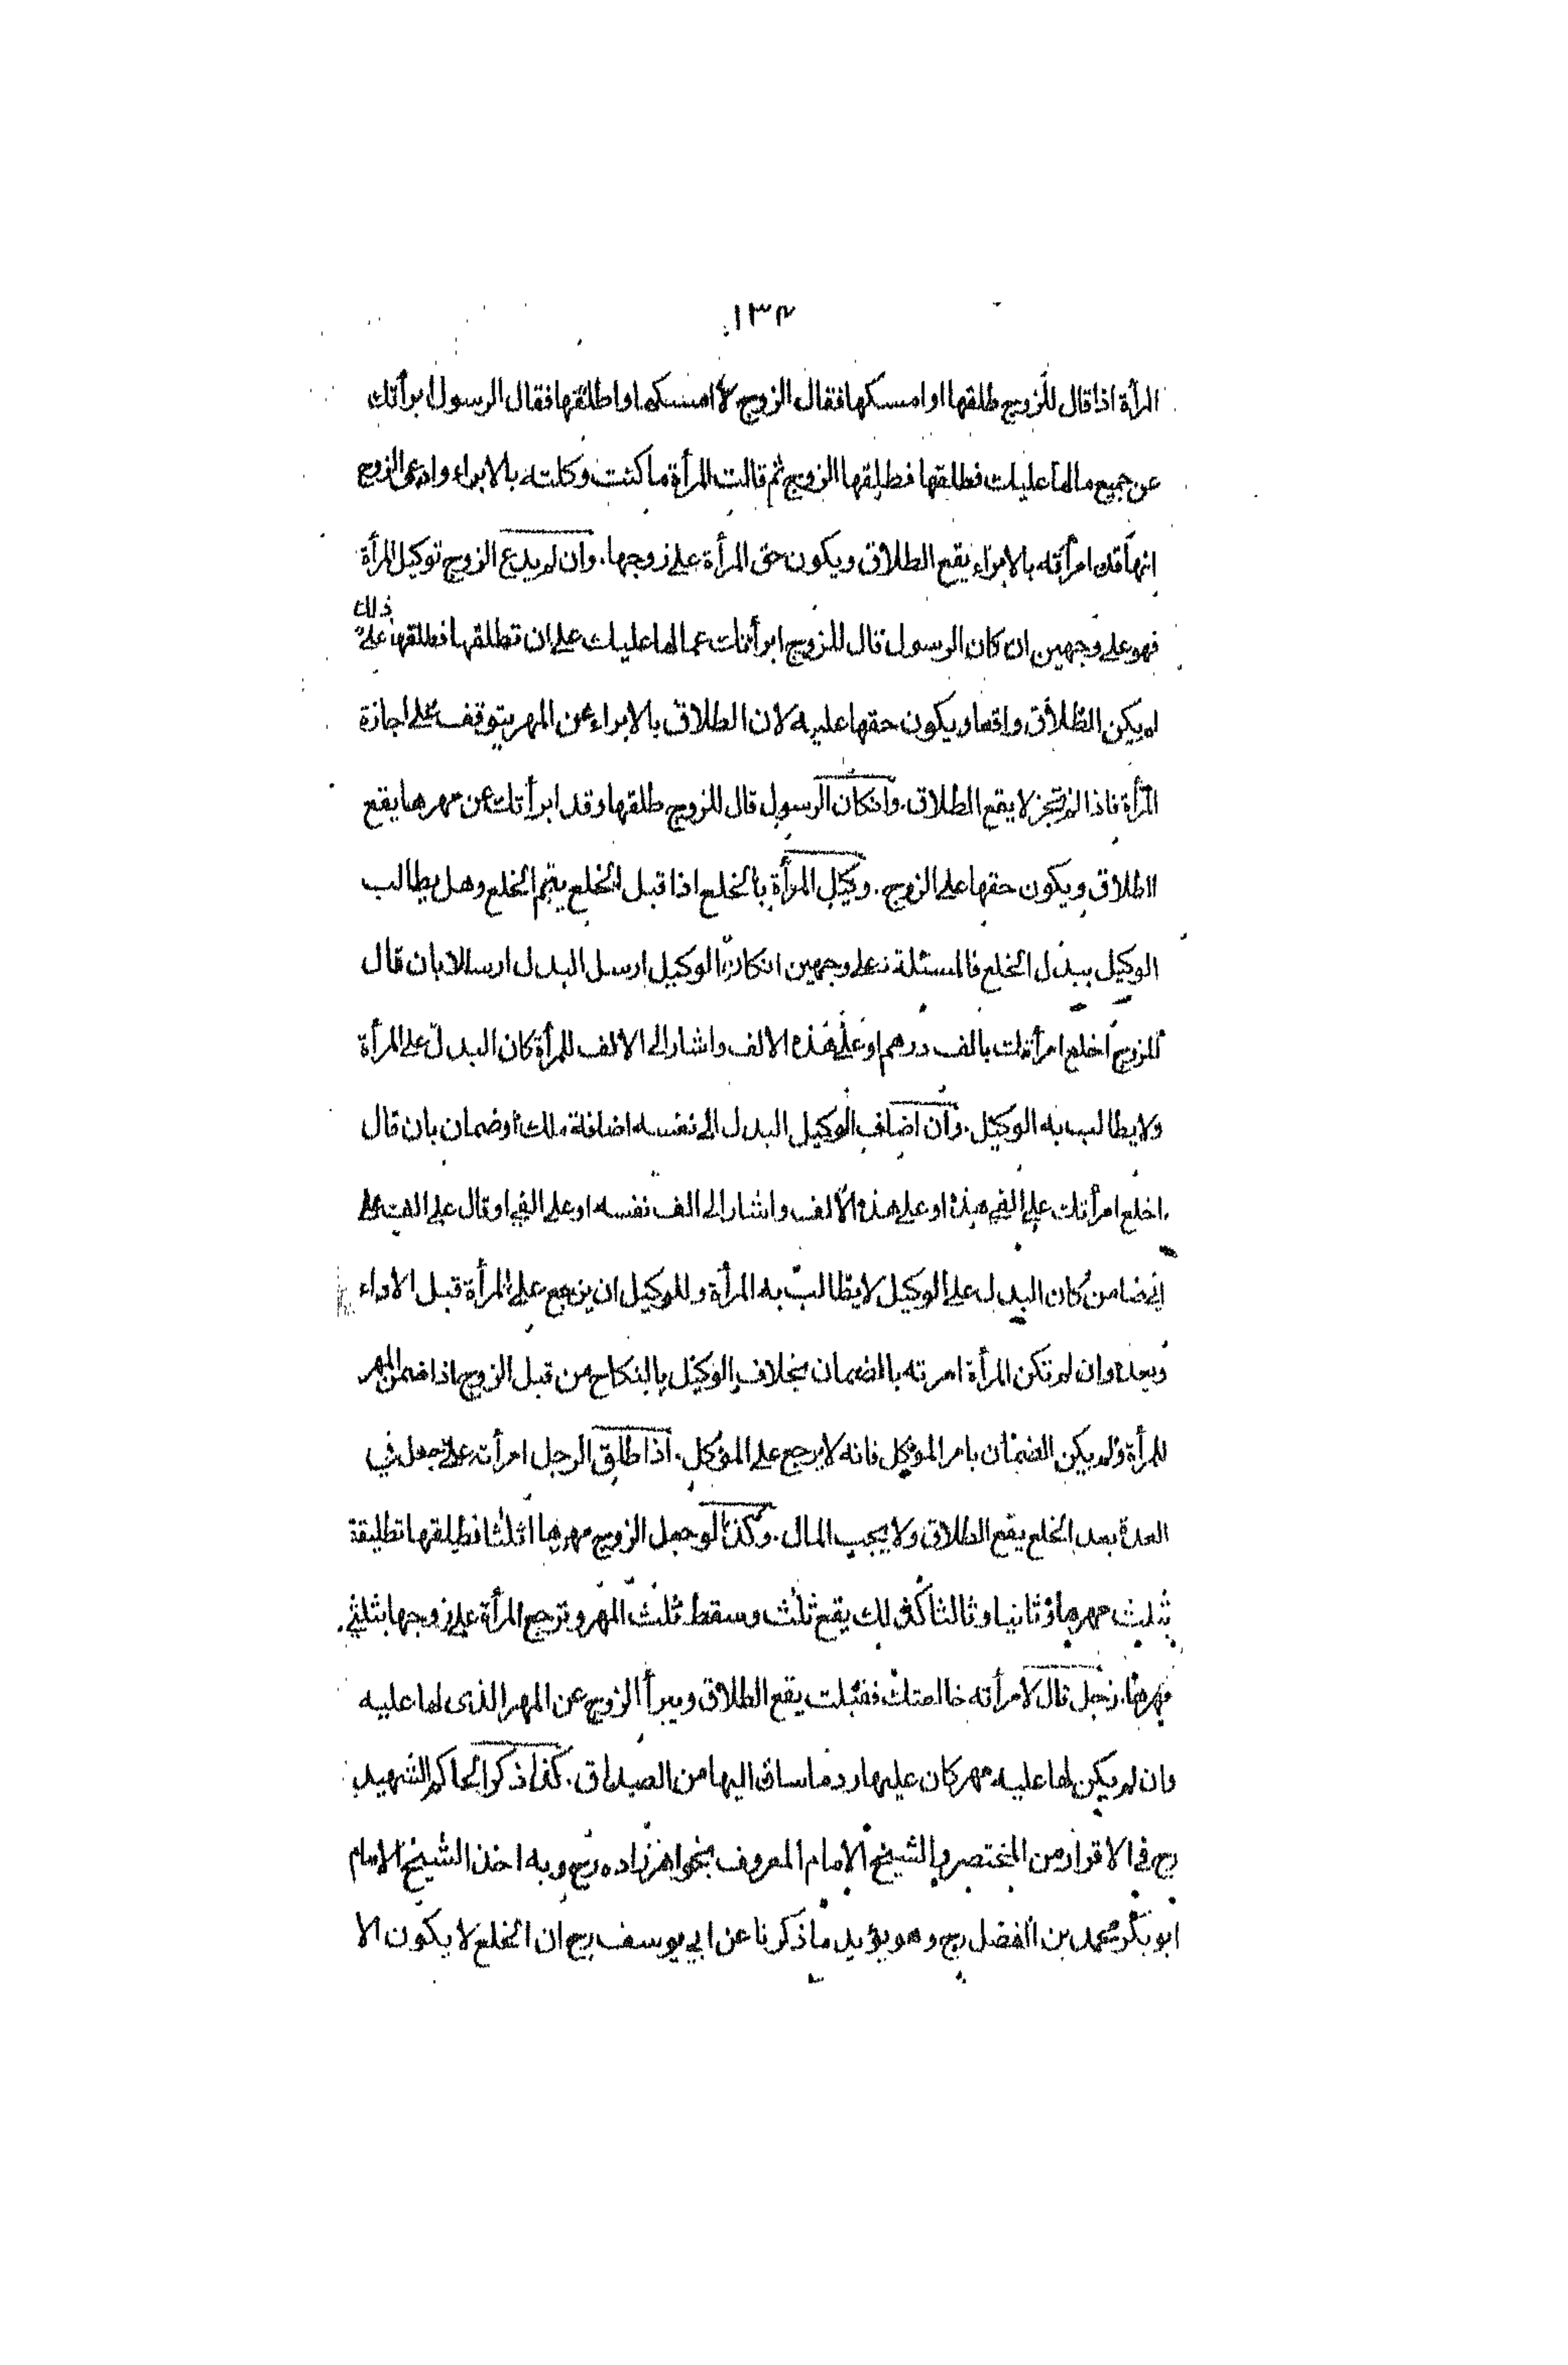 ١٣٤
المرأة اذا قال للزوج طلقها او امسكها فقال الزوج لا امسكها واطلقها فقال الرسول ابرأتك
عن جميع مالها عليك فطلقها فطلقها الزوج ثم قالت المرأة ما كنت وكلته بالابراء وادعى الزوج
انها قد امرته بالابراء يقع الطلاق ويكون حق المرأة على زوجها. وان لم يدع الزوج توكيل المرأة
فهو على وجهين ان كان الرسول قال للزوج ابرأتك عما لها عليك على ان تطلقها فطلقها على ذلك
لم يكن الطلاق واقعا ويكون حقها عليه لان الطلاق بالابراء عن المهر يتوقف على اجازة
المرأة فاذا لم تجز لا يقع الطلاق. وان كان الرسول قال للزوج طلقها وقد ابرأتك عن مهرها يقع
الطلاق ويكون حقها على الزوج. وكيل المرأة بالخلع اذا قبل الخلع يتم الخلع وهل يطالب
الوكيل ببدل الخلع فالمسئلة على وجهين ان كان الوكيل ارسل البدل ارسالا بان قال
للزوج اخلع امرأتك بالف درهم او على هذه الالف واشار الى الالف للمرأة كان البدل على المرأة
ولا يطالب به الوكيل. وان اضاف الوكيل البدل الى نفسه اضافة ملك او ضمان بان قال
اخلع امرأتك على الفي هذه او على هذه الالف واشار الى الف نفسه او على الفي او قال على الف على
اني ضامن كان البدل على الوكيل لا يطالب به المرأة وللوكيل ان يرجع على المرأة قبل الاداء
وبعده وان لم تكن المرأة امرته بالضمان بخلاف الوكيل بالنكاح من قبل الزوج اذا ضمن المهر
للمرأة ولم يكن الضمان بامر المؤكل فانه لا يرجع على المؤكل. اذا طلق الرجل امرأته على جعل في
العدة بعد الخلع يقع الطلاق ولا يجب المال. وكذا لو جعل الزوج مهرها اثلاثا فطلقها تطليقة
بثلث مهرها وثانيا وثالثا كذلك يقع ثلث وسقط ثلث المهر وترجع المرأة على زوجها بثلثي
مهرها. رجل قال لامرأته خالعتك فقبلت يقع الطلاق ويبرأ الزوج عن المهر الذى لها عليه
وان لم يكن لها عليه مهر كان عليها رد ما ساق اليها من الصداق. كذا ذكر الحاكم الشهيد
رح فى الاقرار من المختصر والشيخ الامام المعروف بخواهرزاده رح وبه اخذ الشيخ الامام
ابو بكر محمد بن الفضل رح وهو يؤيد ما ذكرنا عن ابي يوسف رح ان الخلع لا يكون الا